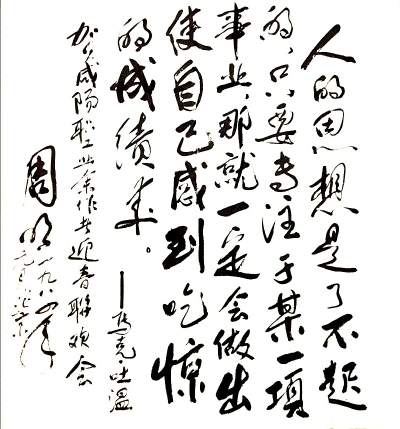 人的思想是了不起
的,只要专注于某一项
事业,那就一定会做出
使自己感到吃惊
的成绩来。——马克·吐温
咸阳职业余作者迎春联欢会
周明 一九八四年
元月